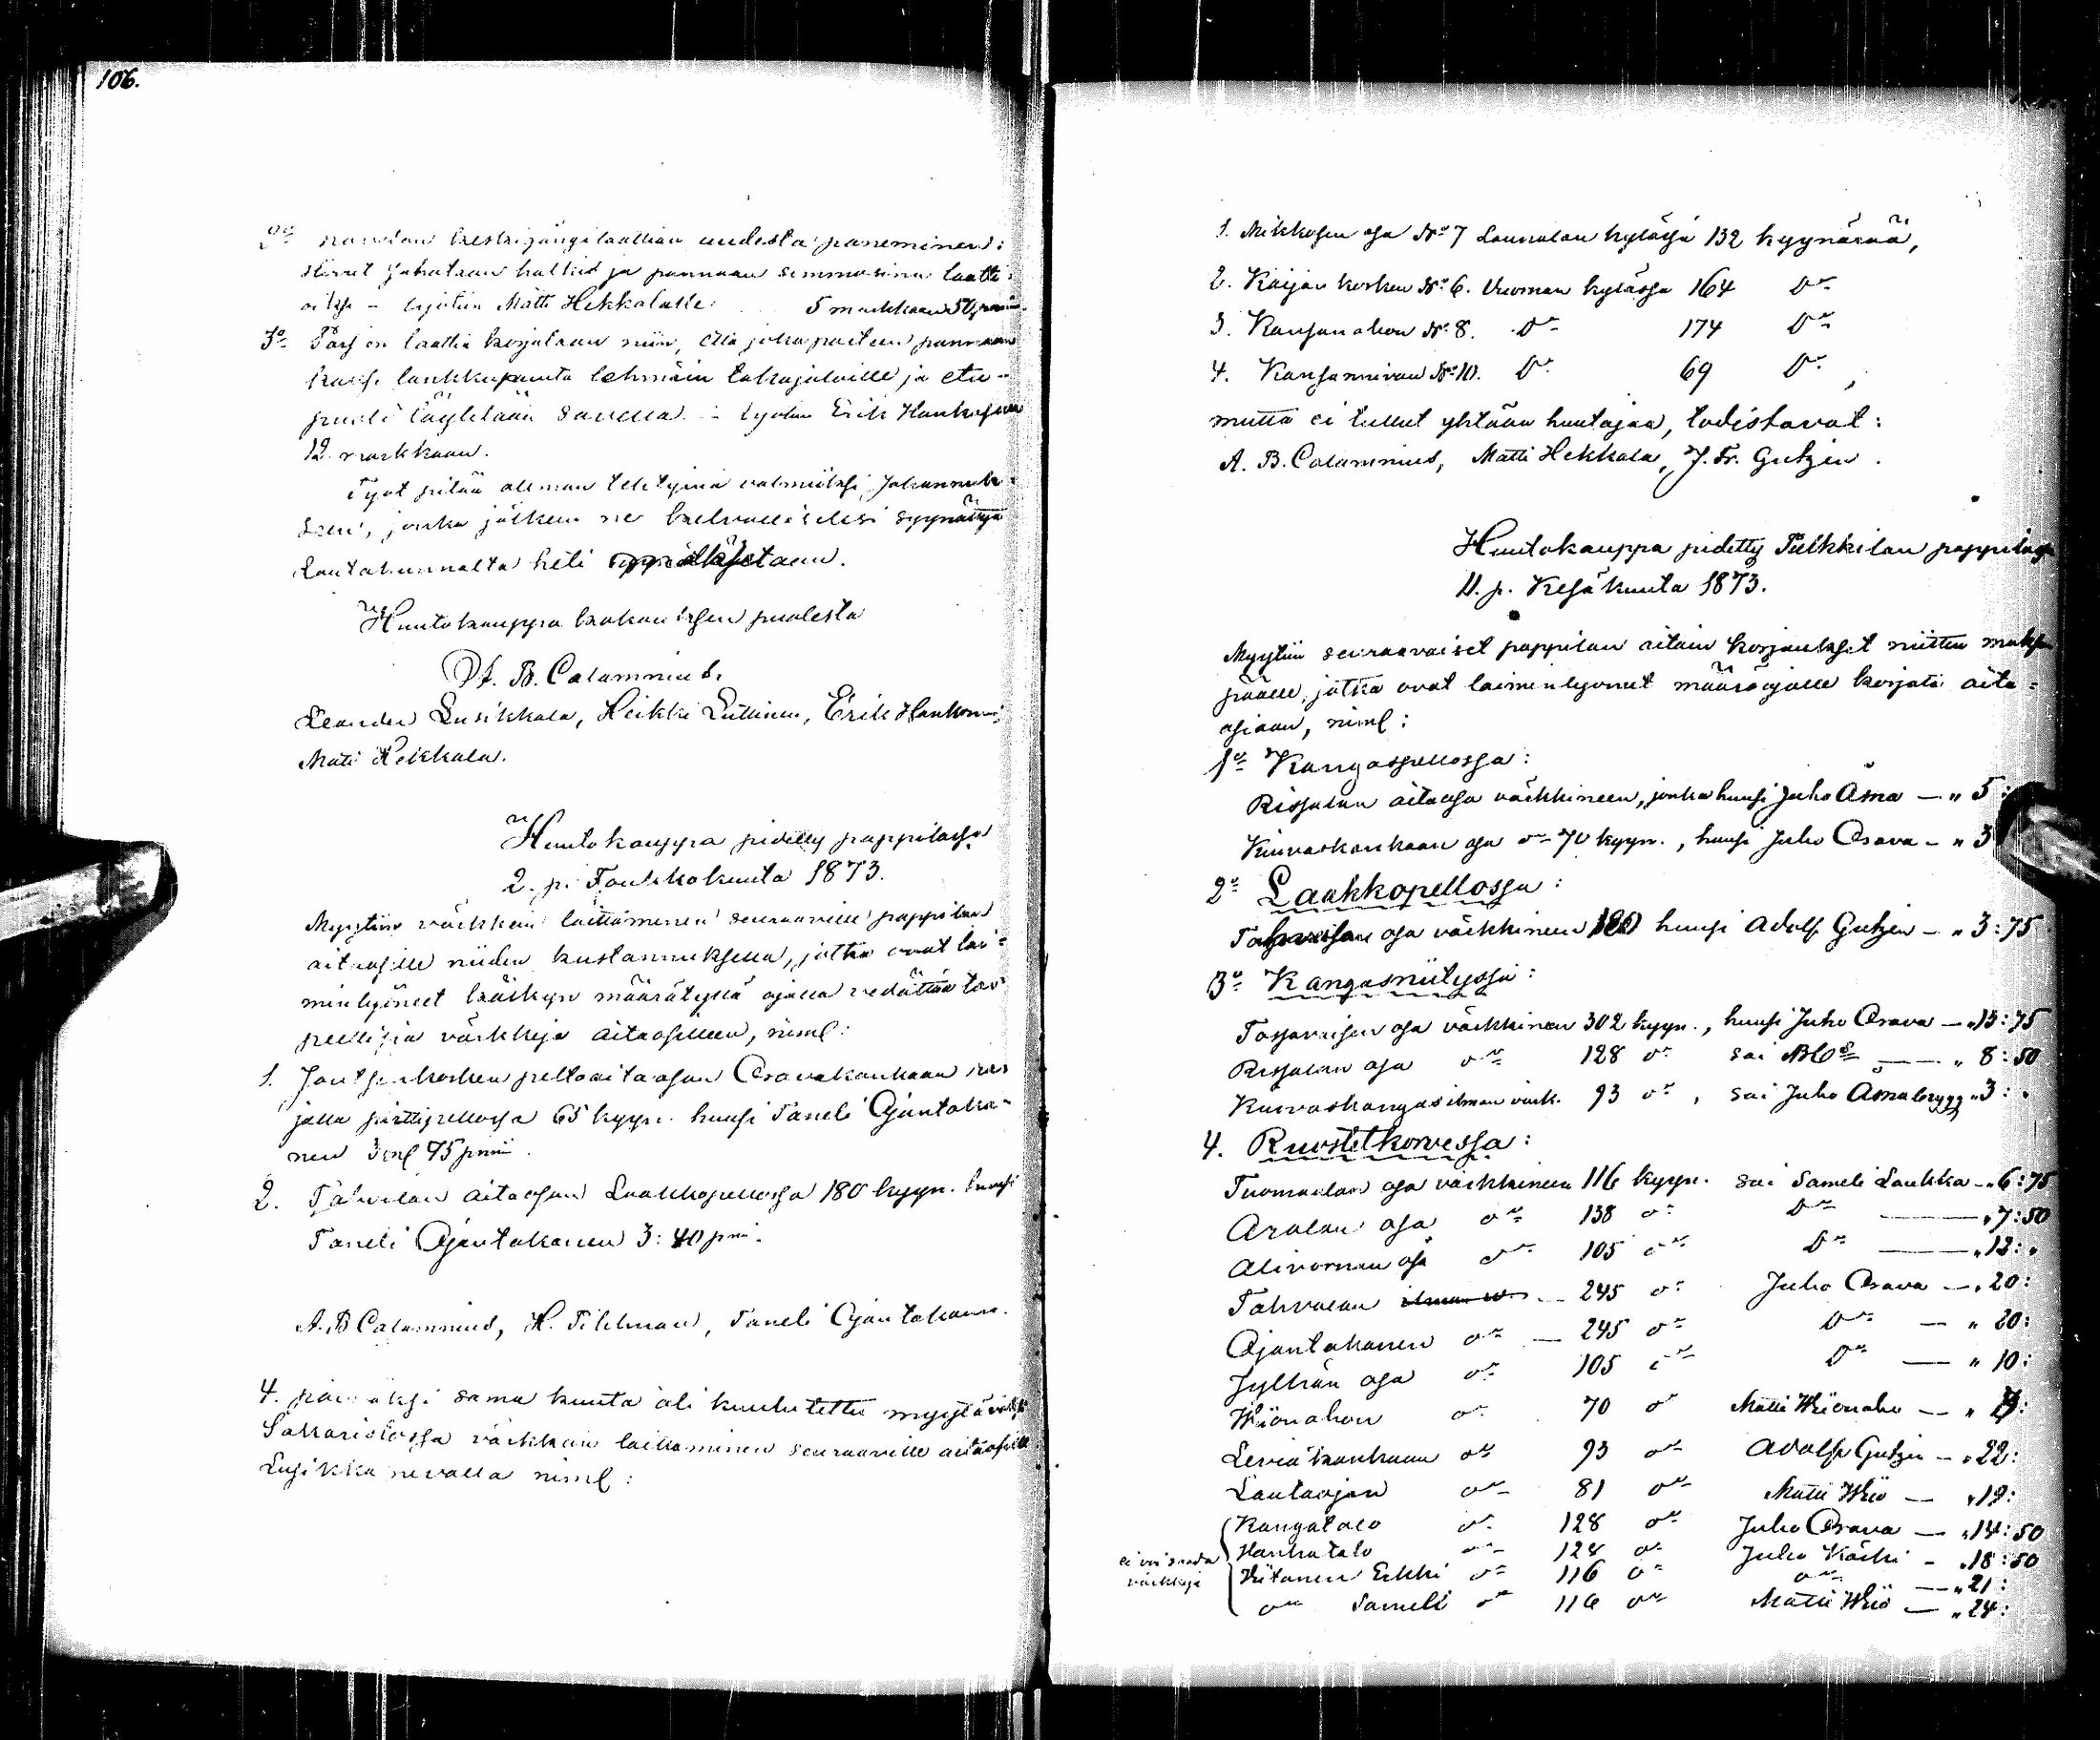 106.
2:o navetan keskijängilaattian uudesta paneminen:
slivut jahataan halki ja pannaan semmosina laatti-
aksi – lyötiin Matti Hekkalalle 5 markkaan 50 penn.
3:o laattia korjataan niin, että joka paiteen pannaan
kaksi lankkupuuta lehmäin takajaloille ja etu-
puoli täytetään savella – lyötiin Erik Hankosen
12 markkaan.
Työt pitää olleman tehtyinä valmiiksi Johannuk-
seen, jonka jälkeen ne kelvollisiksi syynätyt
Lautakunnalta heti
Huutokauppa kokouksen puolesta
A. B. Calamnius.
Leander Lusikkala, Heikki Erik Hankonen,
Matti Hekkala.
Huutokauppa pidetty pappilassa
2. p. Toukokuuta 1873.
Myytiin värkkein laittaminen seuraaville pappilan
aitaosille niiden kustannuksella, jotka ovat lai-
minlyöneet käskyn määrätyllä ajalla vedättää tar-
peellisia värkkejä aitaosilleen, niml:
1. peltoaitaosan Oravakankaan
jalla pirttipellossa 65 kyyn. huusi Taneli Ojantaka-
nen 3 mf 75 pnniä.
2. Tahvolan aitaosan Laakkopellossa 180 kyyn. huusi
Taneli Ojantakanen 3: 40 pnni.
A. B. Calamnius, H. Tihlman, Taneli Ojantakanen.
4. päivaksi sama kuuta oli kuulutettu myytäväksi
Sakaristossa värkkäin laittaminen seuraaville aitaosille
Lusikka nevalla niml:
1. Mikkosen osa No 7 Launolan kylässä 132 kyynärää,
2. Käijän kosken No 6. Vuoman kylässä 164 D:o
3. Kansanahon No 8. D:o 174 D:o
4. Kansannivan No 10. D:o 69 D:o,
mutta ei tullut yhtään huutajaa, todistavat:
A. B. Calamnius, Matti Hekkala, J. Fr. Gutzén.
Huutokauppa pidetty Pulkkilan pappilassa
11. p. Kesäkuuta 1873.
Myytiin seuraavaiset pappilan aitain korjaukset niitten maksun
päälle, jotka ovat laiminlyöneet määräajalle korjata aita-
osiaan, niml:
1:o Kangaspellossa:
Rissalan aitaosa värkkineen, jonka huusi Juho Åsna — " 5:
Kuivaskankaan osa d:o 70 kyyn., huusi Juho Orava – " 3
2:o Laakkopellossa:
osa värkkineen 180 huusi Adolf Gutzén – " 3:75
3:o Kangasniityssä:
Tossavaisen osa värkkineen 302 kyyn., huusi Juho Orava — " 13:75
Rissalan osa d:o 128 d:o sai — " 8:50
Kuivaskangas ilman värk. 93 d:o, sai Juho Åsnabrygg " 3: "
4. Ruostetkorvessa:
Tuomaalan osa värkkineen 116 kyyn. sai Sameli Laukka – " 6:75
Aralan osa d:o 138 d:o D:o — " 7:50
Alivornan osa d:o 105 d:o D:o — " 12: "
Tahvolan — 245 d:o Juho Orava — " 20:
Ojantakanen d:o — 245 d:o D:o — " 20:
Jylhän osa d:o 105 d:o D:o — " 10:
Wiionahon d:o 70 d:o Matti Wiionaho — "
Leviäkankaan d:o 93 d:o Adolf Gutzén — " 22:
Lautaojan d:o 81 d:o Matti Wiio — " 19:
Kangatalo d:o 128 d:o Juho Orava — " 14:50
Hankatalo d:o 128 d:o Juho Käcki – " 18:50
ei voi saada
värkkejä
Kiitanen Erkki d:o 116 d:o d:o — " 21:
d:o Sameli d:o 116 d:o Matti Wiio — " 24: